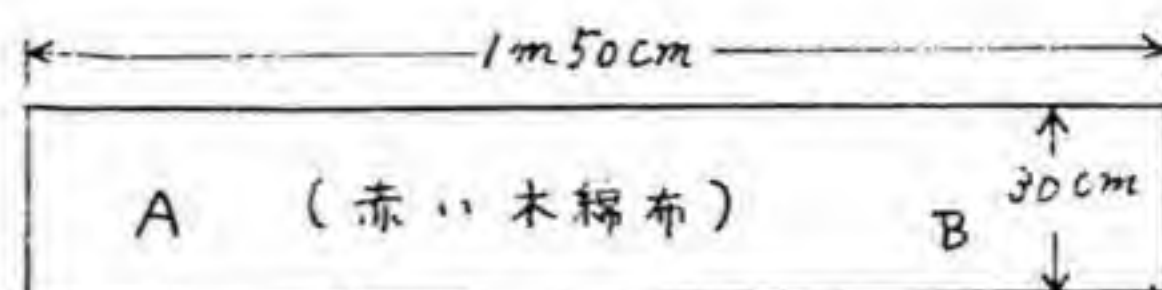 1m50cm
A （赤い木綿布） B 30cm